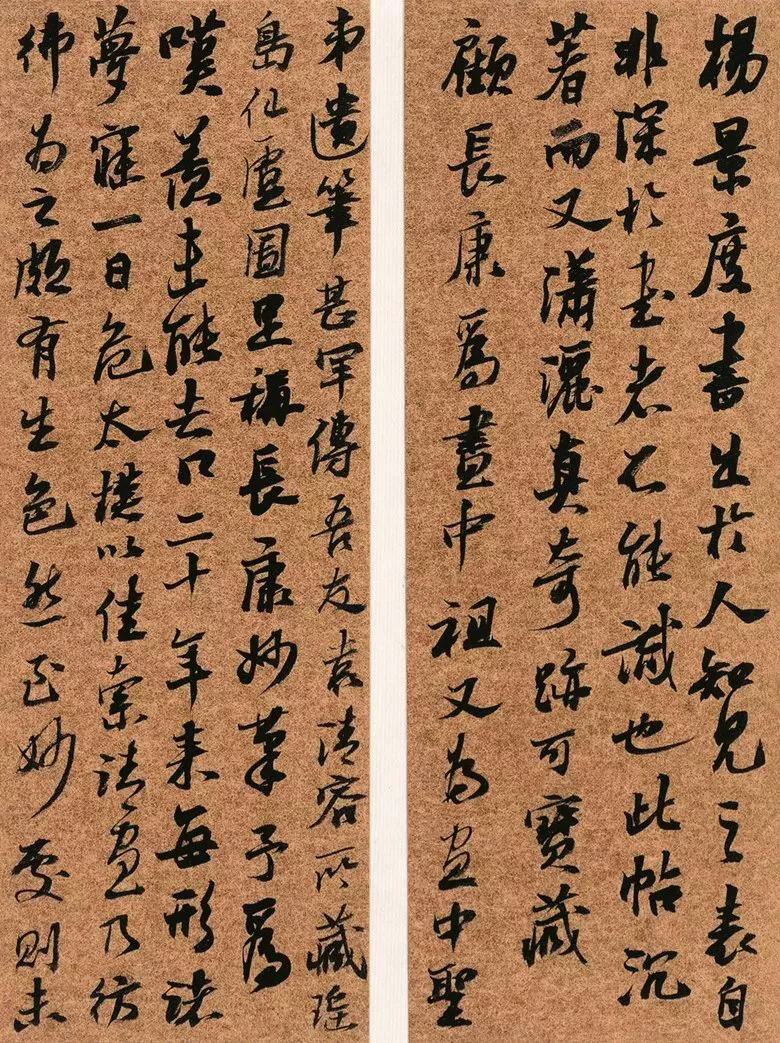 楊景度書出於人知見之表自
非深於書者不能識也此帖沉
著而又瀟灑真奇跡可寶藏
顧長康爲畫中祖又為畫中聖
弟遺筆甚罕傳吾友袁清容所藏瑤
島仙廬圖足稱長康妙筆予爲
嘆羨未能去口二十年來每形諸
夢寐一日危太樸以佳素請畫乃彷
彿為之頗有生色然至妙處則未